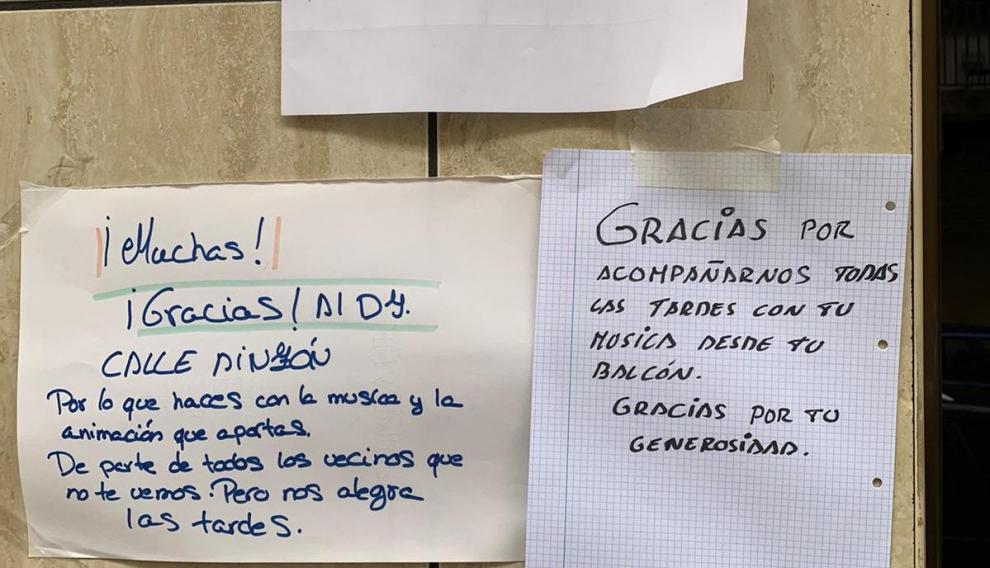 ¡Muchas!
¡Gracias! Al DJ.
CALLE PINZÓN
Por lo que haces con la musica y la
animación que aportas.
De parte de todos los vecinos que
no te vemos. Pero nos alegra
las tardes.
GRACIAS POR
ACOMPAÑARNOS TODAS
LAS TARDES CON TU
MUSICA DESDE TU
BALCÓN.
GRACIAS POR TU
GENEROSIDAD.